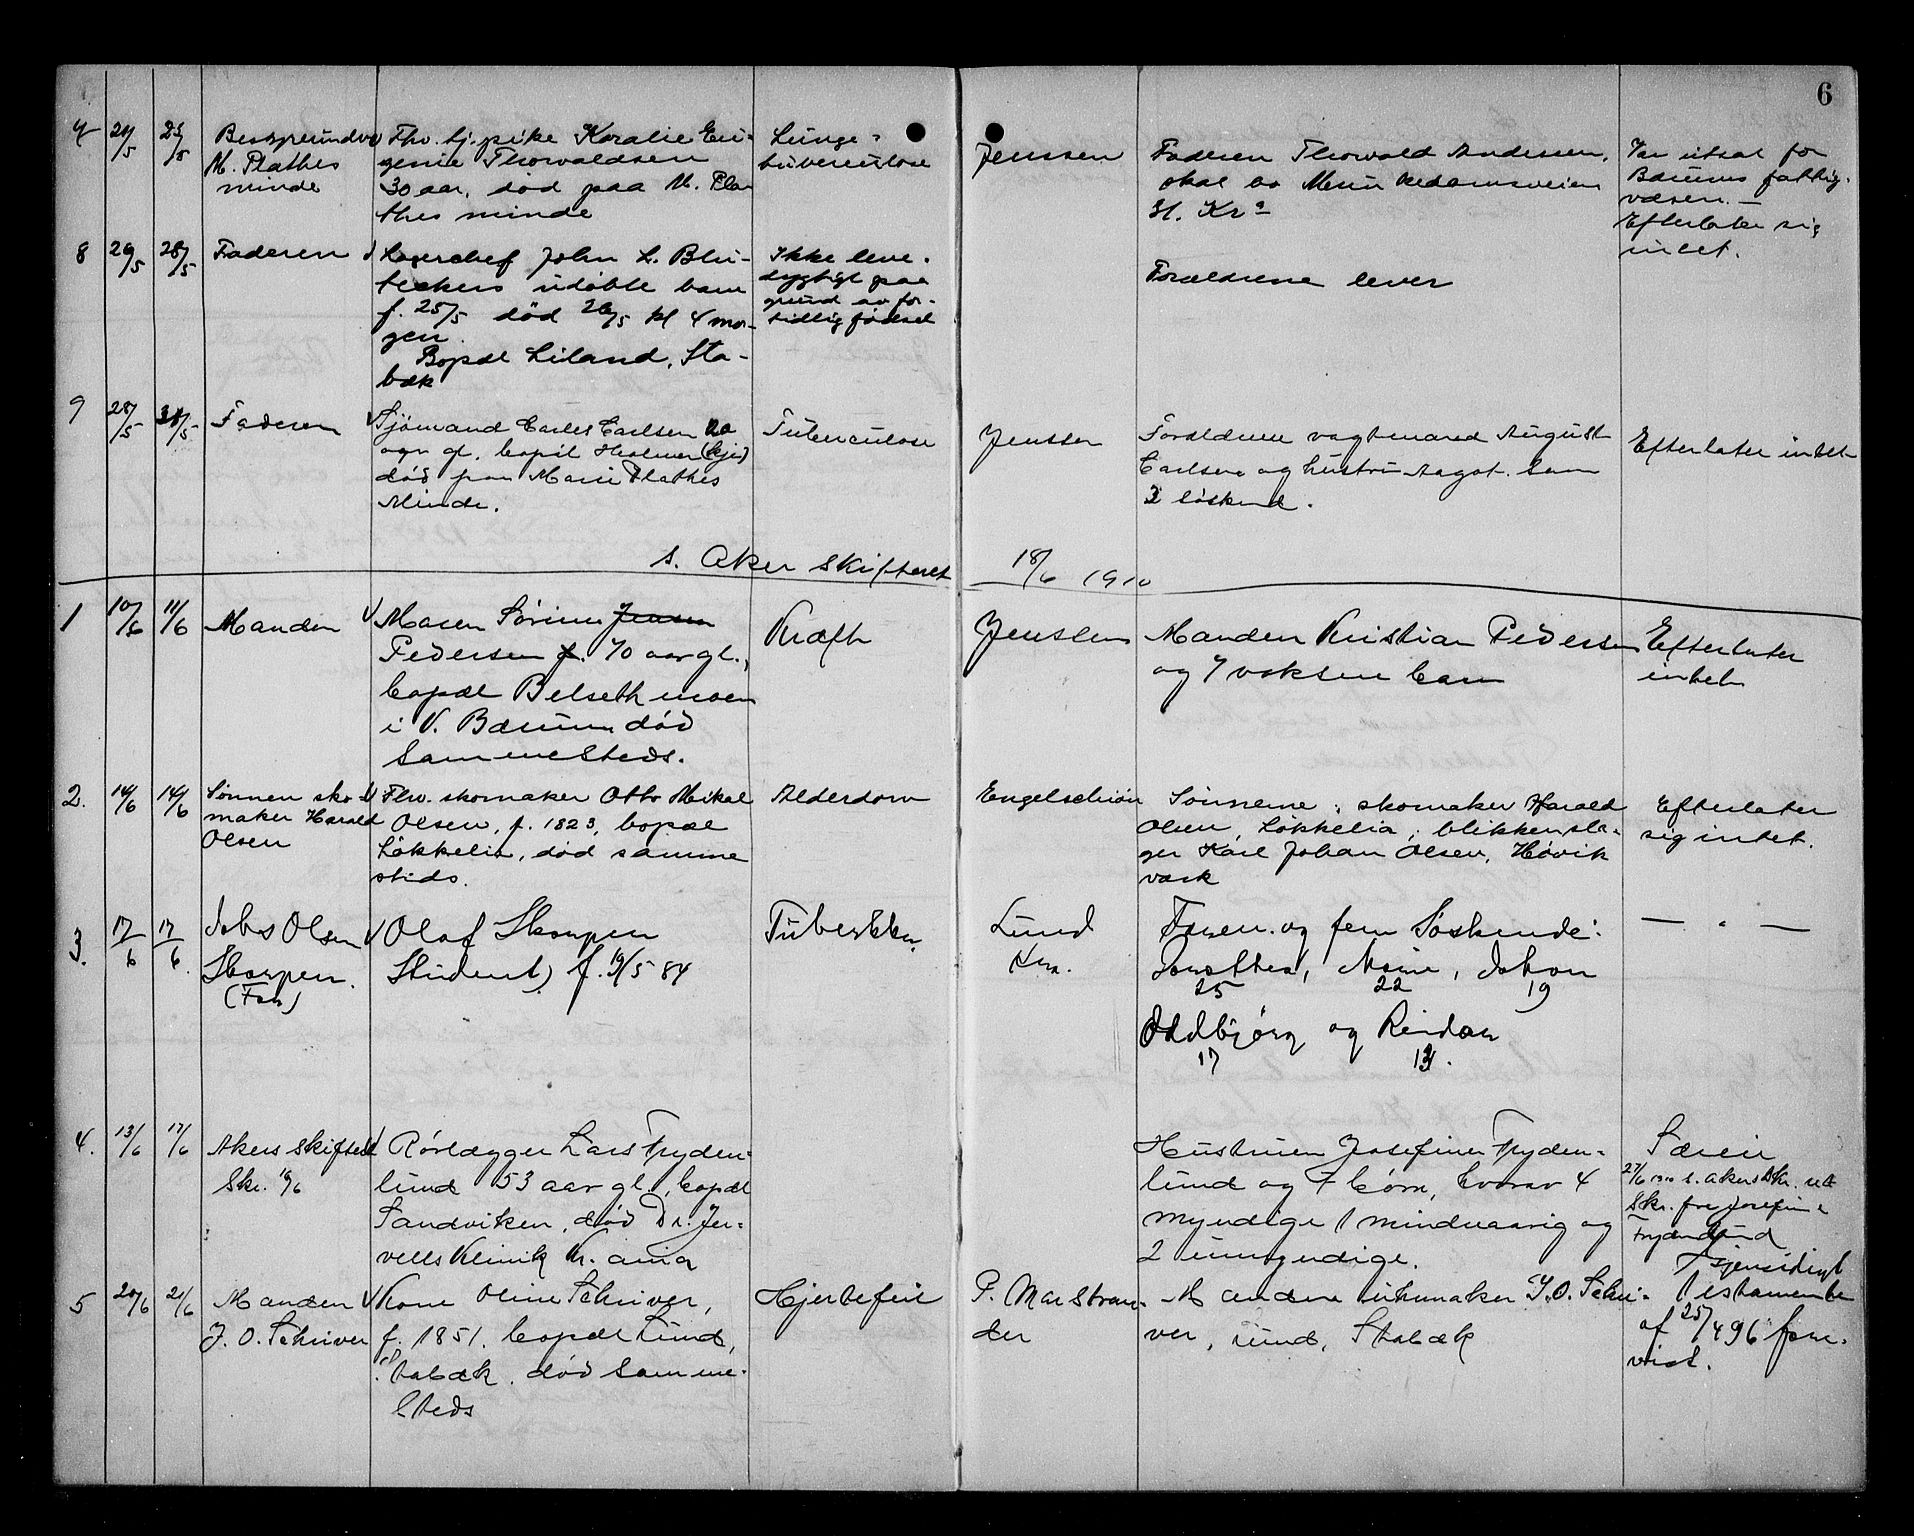 6
7 24/5 25/5
M. Plathes
minde
Fhv. tj.pike Koralie Eu-
genie Thorvaldsen
30 aar, død paa M. Pla
thes minde
Lunge-
tuberculose
Jenssen
Faderen Thorvald Andersen,
skal bo Mosseveien
31. Kr a
Var utsat for
Bærums fattig-
væsen. —
Efterlater sig
intet.
8 26/5 28/5
Faderen
John L. Bli-
udøbte barn
f. 25/5 død 26/5 kl 4 mor-
gen.
Bopæl Liland, Sta-
bæk
Ikke leve-
dygtigt paa
grund av for-
tidlig fødsel
Forældrene lever
9 28/5 31/5
Faderen
Sjømand Carles Carlsen 20
aar gl. bopæl
død paa Marie Plathes
Minde.
Tuberculose
Jenssen
Forældrene vagtmand August
Carlsen og hustru Aagot. Samt
3 søskend.
Efterlater intet
s. Aker skifteret 18/6 1910
1 10/6 11/6
Manden
Maren Sørine Jensen
Pedersen f. 70 aar gl.,
bopæl Belseth moen
i V. Bærum død
sammesteds.
Kræft
Jenssen
Manden Kristian Pedersen
og 7 voksne barn
Efterlater
intet
2. 14/6 14/6
Sønnen sko-
maker Harald
Olsen
Fhv. skomaker Otto Mikal
Olsen, f. 1823, bopæl
Løkkelia, død samme
steds.
Alderdom
Engelschiøn
Sønnerne: skomaker Harald
Olsen, Løkkelia, blikkensla-
ger Karl Johan Olsen, Høvik
værk
Efterlater
sig intet.
3. 17/6 17/6
Johs Olsen
Skorpen.
(Far)
Olaf Skorpen
Student) f. 19/5 84
Tuberkku.
Lund
Kra.
Faren. og fem Søskende:
Dorothea, Marie, Johan
25 22 19
Oddbjørg og Reidar
17
— " —
4. 13/6 17/6
Akers Skifteret
Skr. 16/6
Rørlægger Lars Fryden-
lund 53 aar gl., bopæl
Sandviken, død Dr. Jer-
vells Klinik Kr. ania
Hustruen Josefine Fryden-
lund og 7 børn, hvorav 4
myndige 1 mindreaarig og
2 umyndige.
Særeie
27/6 1910 s. Akers Skr. ret
Skr. fra Josefine
Frydenlund
5 20/6 21/6
Manden
J. O. Schriver
Kone Oline Schriver,
f. 1851. bopæl Lund,
Stabæk. død samme-
steds
Hjertefeil
P. Marstran-
der
Manden urmaker J. O. Schri-
ver, Lund, Stabæk
Gjensidigt
testamente
af 25/4 96 fore-
vist.